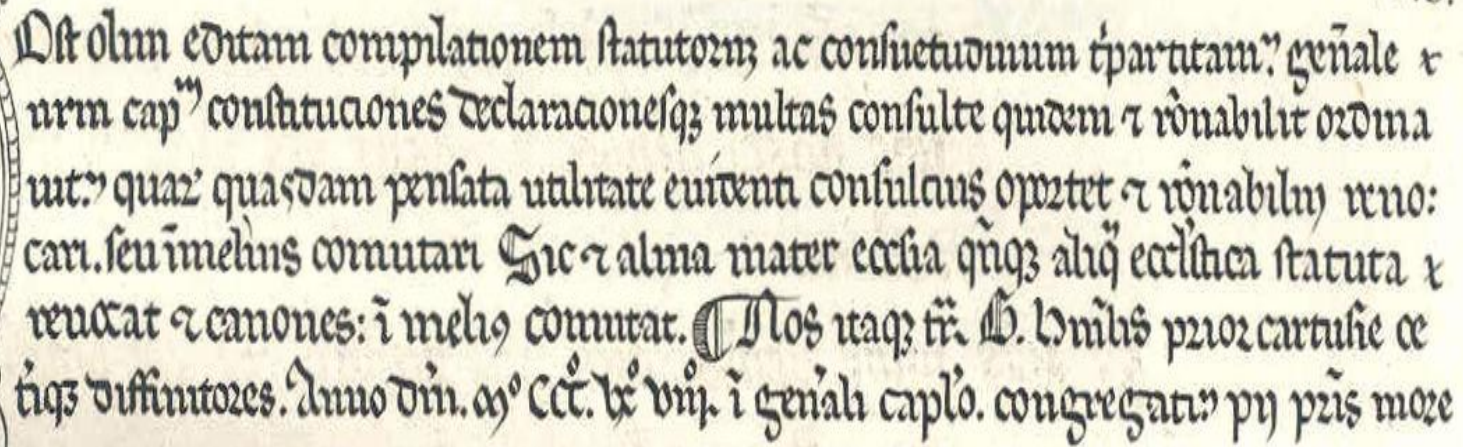 Ost olim editam compilationem statutoruꝫ ac consuetudinum tͥpartitam. gen̄ale ⁊
nrm capᵐ constituciones declaracionesqꝫ multas consulte quidem ⁊ rōnabilit ordina
uit. quaꝝ quasdam pensata utilitate euidenti consulcius oportet ⁊ rōnabiliꝰ reuo:
cari. seu ī melius comutari Sic ⁊ alma mater ecclīa qn̄qꝫ aliqͣ eccl̄istica statuta
reuocat ⁊ canones: ī meliꝰ comutat. ¶ Nos itaqꝫ fr̄. B. humīlis prior cartusie ce
tͥiqꝫ diffinitores. Anno dn̄i. mº ccº. lxº viijº. ī genͣali caplo. congregati pij pr̄is more